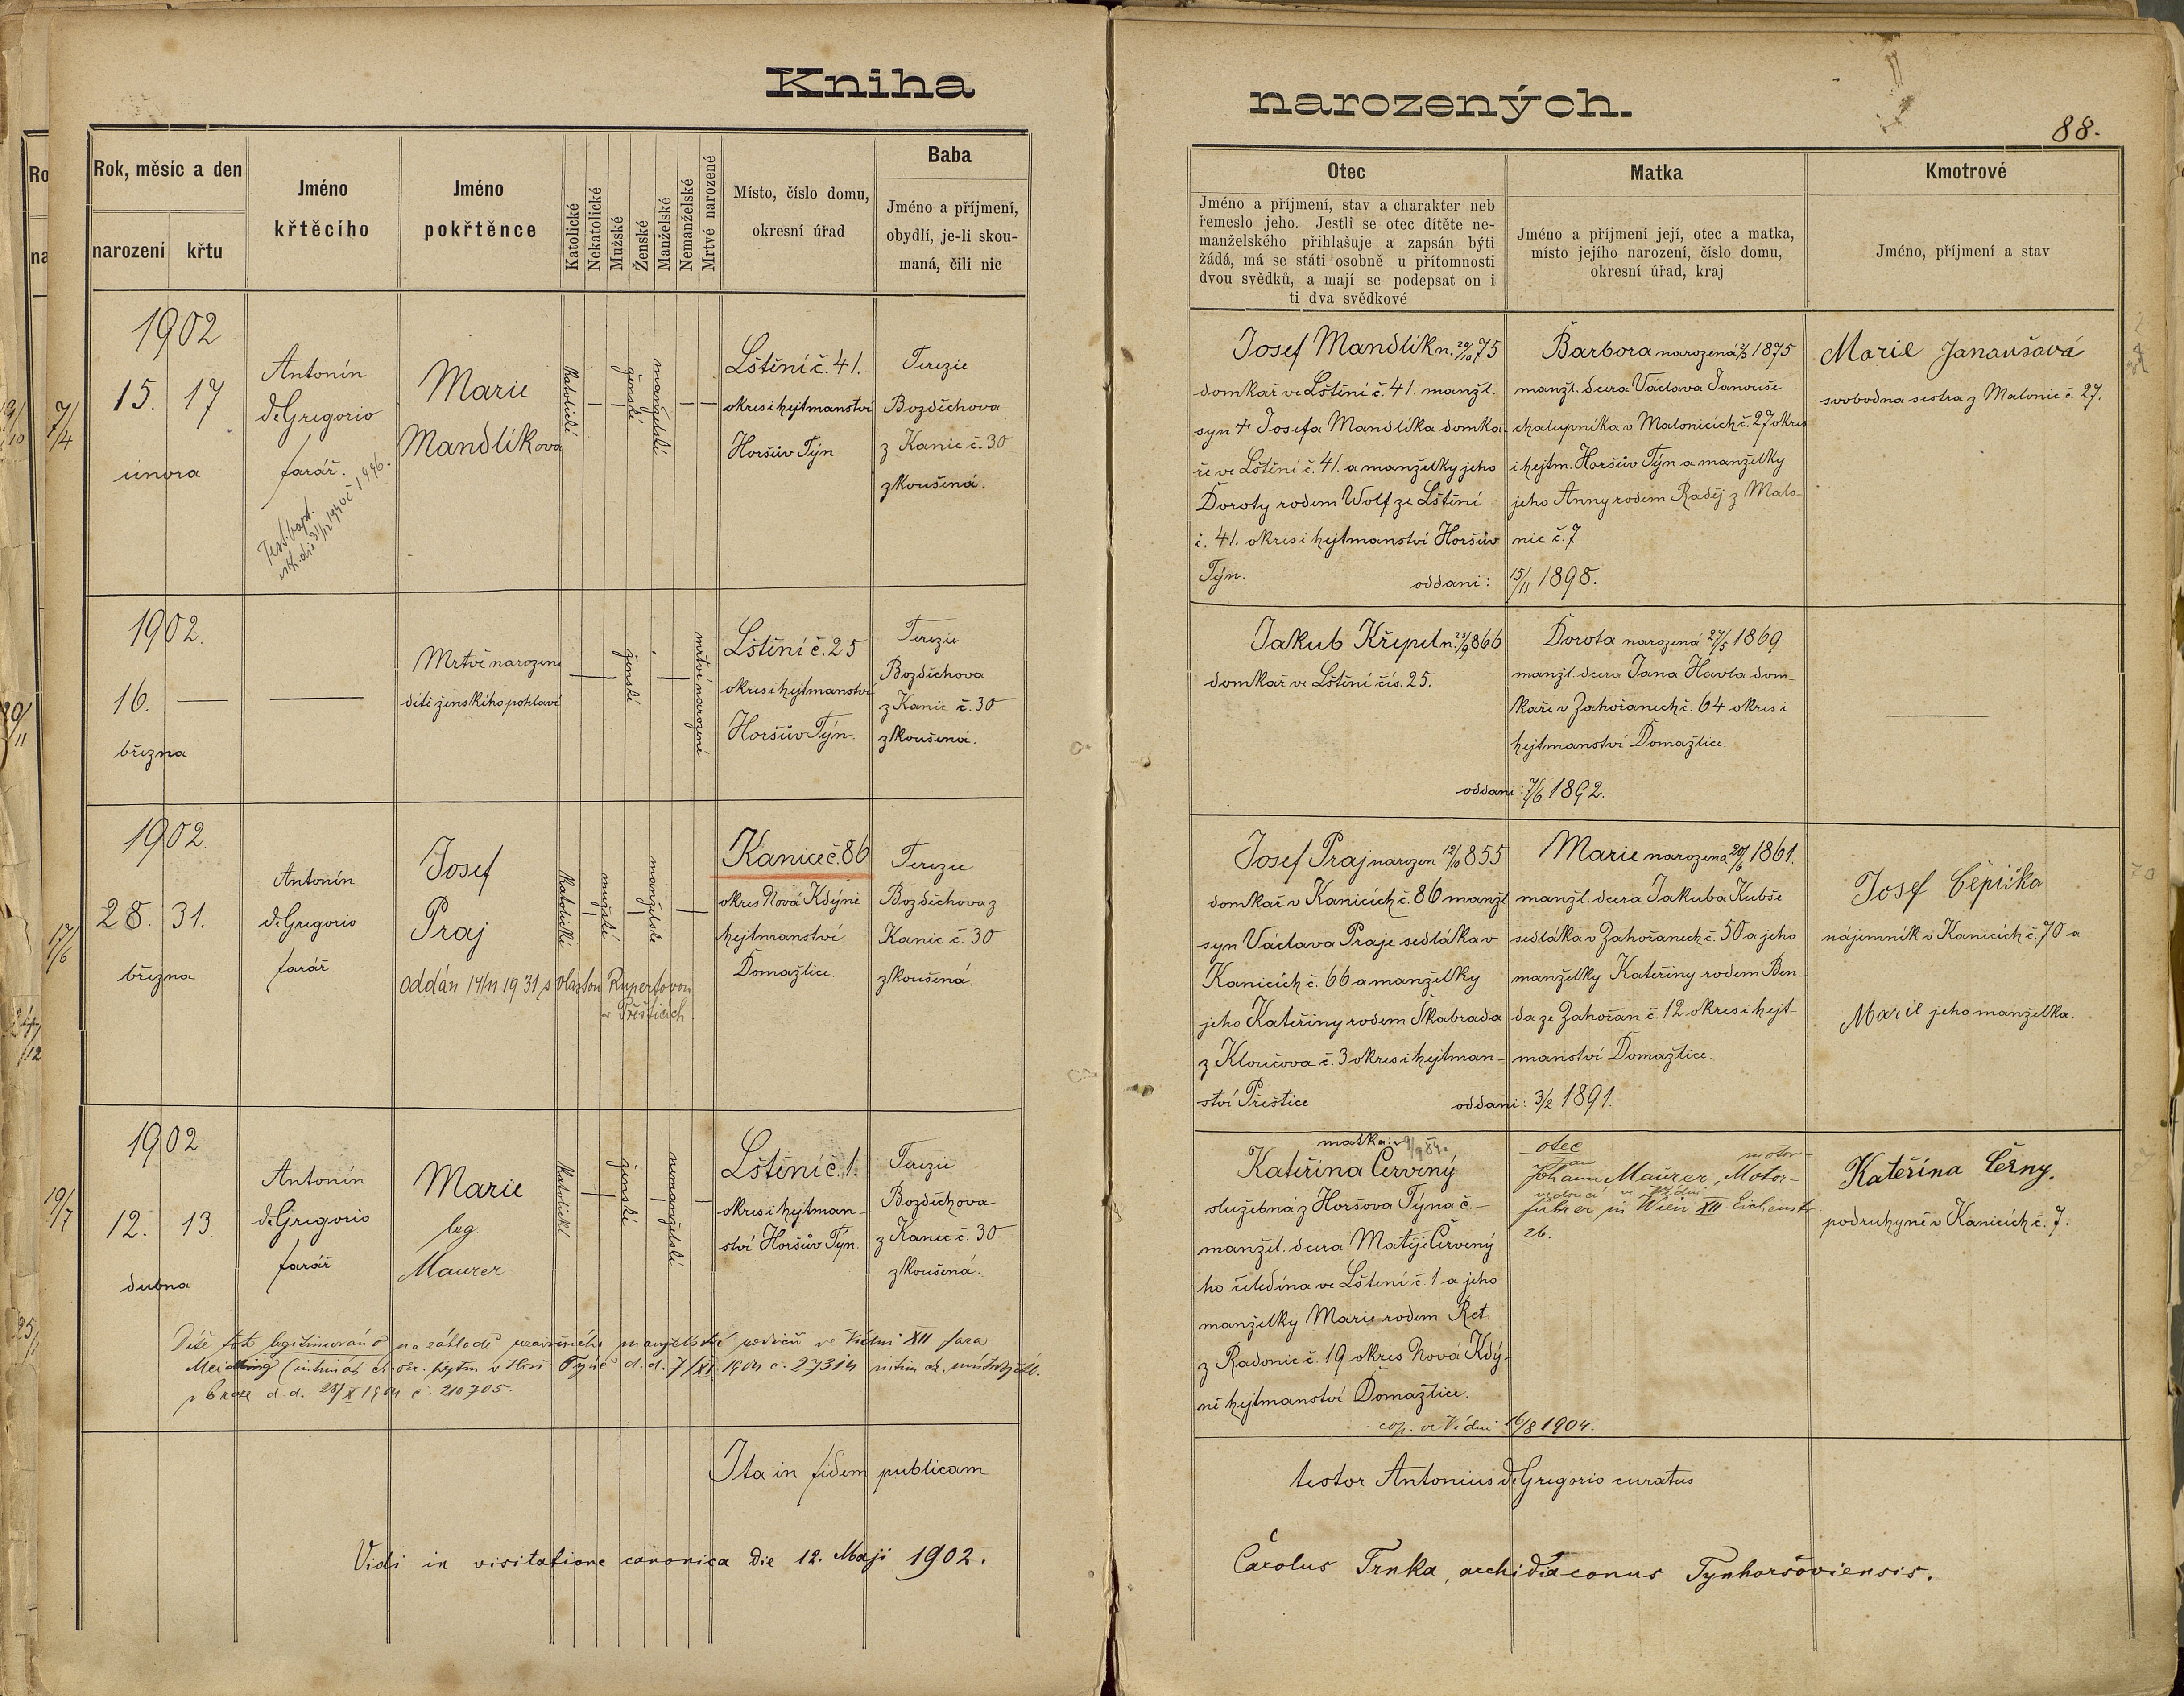 Kniha
narozených.
88.
Rok, měsíc a den
narození
křtu
Jméno
křtěcího
Jméno
pokřtěnce
Katolické
Nekatolické
Mužské
Ženské
Manželské
Nemanželské
Mrtvé narozené
Místo, číslo domu,
okresní úřad
Baba
Jméno a příjmení,
obydlí, je-li skou-
maná, čili nic
Otec
Jméno a příjmení, stav a charakter neb
řemeslo jeho. Jestli se otec dítěte ne-
manželského přihlašuje a zapsán býti
žádá, má se státi osobně u přítomnosti
dvou svědků, a mají se podepsat on i
ti dva svědkové
Matka
Jméno a příjmení její, otec a matka,
místo jejího narození, číslo domu,
okresní úřad, kraj
Kmotrové
Jméno, příjmení a stav
7/4
1902
15. 17
února
Antonín
deGregorio
farář.
Marie
Mandlíkova
katolické
ženské
manželské
Lštění č. 41.
okres i hejtmanství
Horšův Týn
Terezie
Bozděchova
z Kanic č. 30
zkoušená.
Josef Mandlík n. 20/10 75
domkař ve Lštění č. 41. manžl.
syn + Josefa Mandlíka domka-
ře ve Lštění č. 41. a manželky jeho
Doroty rodem Wolf ze Lštění
č. 41. okres i hejtmanství Horšův
Týn. oddáni: 15/11 1898.
Barbora narozená 1875
manžl. dcera Václava Janouše
chalupníka v Malonicích č. 27 okres
i hejtm. Horšův Týn a manželky
jeho Anny rodem Raděj z Malo-
nic č. 7
Marie Janoušová
svobodna sestra z Malonic č. 27.
1902.
16. —
března
Mrtvě narozené
dítě ženského pohlaví
ženské
mrtvě narozené
Lštění č. 25
okres i hejtmanství
Horšův Týn.
Terezie
Bozděchova
z Kanic č. 30
zkoušená.
Jakub Křepel n. 866
domkař ve Lštění čís. 25.
oddani: 7/6 1892.
Dorota narozená 27/5 1869
manžl. dcera Jana Havla dom-
kaře v Zahořanech č. 64 okres i
hejtmanství Domažlice.
17/6
1902.
28. 31.
března
Antonín
deGregorio
farář
Josef
Praj
oddán 14/11 1931 s Vlastou Rupertovou
v Přešticích
katolické
mužské
manželské
Kanice č. 86
okres Nová Kdýně
hejtmanství
Domažlice.
Terezie
Bozděchova z
Kanic č. 30
zkoušená.
Josef Praj narozen 855
domkař v Kanicích č. 86 manžl
syn Václava Praje sedláka v
Kanicích č. 66 a manželky
jeho Kateřiny rodem Škabrada
z Kloučova č. 3 okres i hejtman-
ství Přeštice oddani: 3/2 1891.
Marie narozená 1861.
manžl. dcera Jakuba Kubše
sedláka v Zahořanech č. 50 a jeho
manželky Kateřiny rodem Ben-
da ze Zahořan č. 12 okres i hejt-
manství Domažlice.
Josef Čepička
nájemník v Kanicích č. 70 a
Marie jeho manželka.
19/7
1902
12. 13.
dubna
Antonín
deGregorio
farář
Marie
leg.
Maurer
katolické
ženské
nemanželské
Lštění č. 1.
okres i hejtman-
ství Horšův Týn.
Terezie
Bozděchova
z Kanic č. 30
zkoušená.
matka:
Kateřina Červený
služebná z Horšova Týna č. —
manžel. dcera Matěje Červený
ho čeledína ve Lštění č. 1 a jeho
manželky Marie rodem Ret
z Radonic č. 19 okres Nová Kdý-
ně hejtmanství Domažlice.
cop. ve Vídni 16/8 1904.
otec
Jan motor-
Johann Maurer, Motor-
vedoucí ve Vídni
führer in Wien XII
26.
Kateřina Černy.
podruhyně v Kanicích č. 7.
Dítě toto legitimováno na základě uzavřeného manželství rodičů ve Vídni XII fara
Meidling d.d. 7/XI 1904 č. 27314
v Praze d.d. 28/X 1904 č. 210705.
Ita in fidem publicam testor Antonius deGregorio curatus
Vidi in visitatione canonica die 12. Maji 1902.
Carolus Trnka, archidiaconus Tynhoršoviensis.